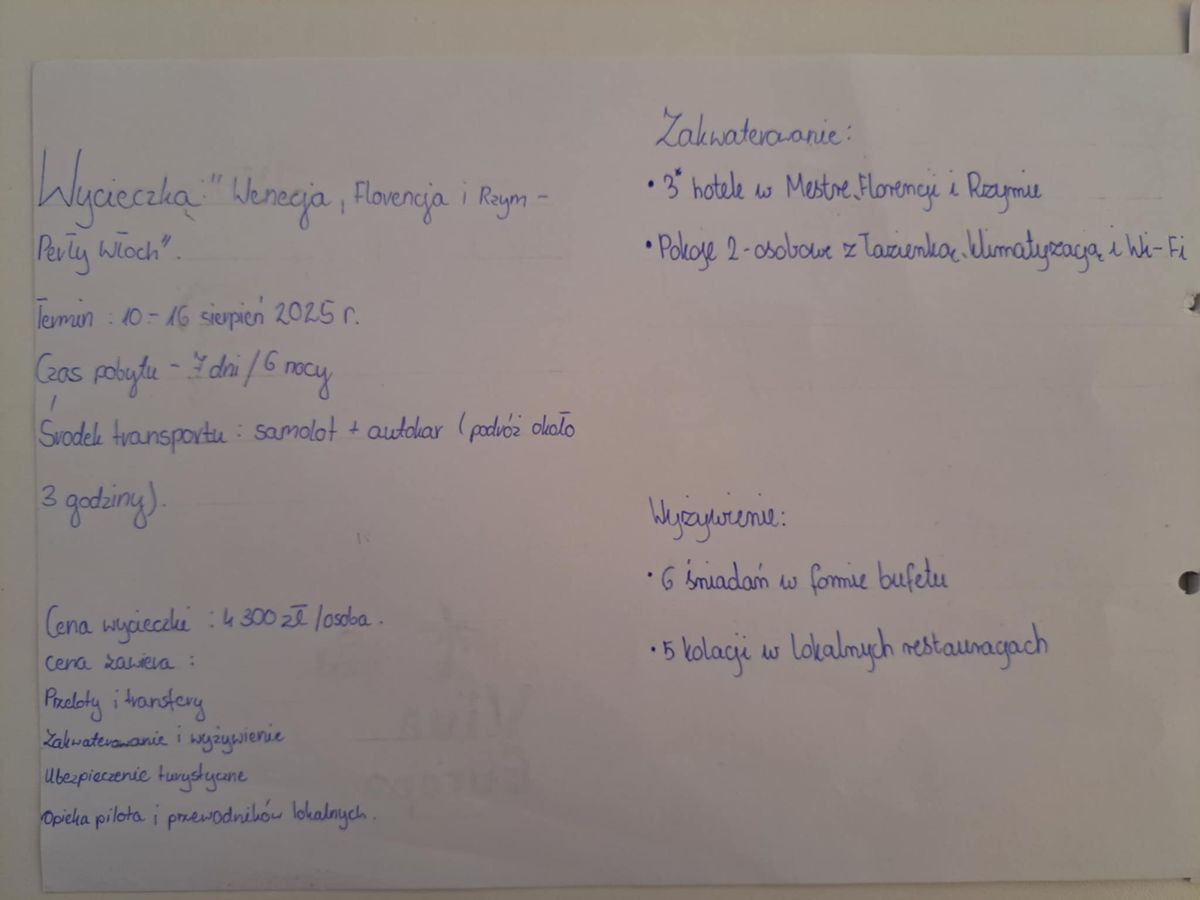 Wycieczka: "Wenecja, Florencja i Rzym -
Perły Włoch".
Termin : 10 - 16 sierpień 2025 r.
Czas pobytu - 7 dni / 6 nocy
Środek transportu : samolot + autokar (podróż około
3 godziny).
Cena wycieczki : 4 300 zł /osoba.
Cena zawiera :
Przeloty i transfery
Zakwaterowanie i wyżywienie
Ubezpieczenie turystyczne
Opieka pilota i przewodników lokalnych.
Zakwaterowanie:
• 3* hotele w Mestre, Florencji i Rzymie
• Pokoje 2-osobowe z łazienką, klimatyzacją i Wi-Fi
Wyżywienie:
• 6 śniadań w formie bufetu
• 5 kolacji w lokalnych restauracjach
Viva
Europa